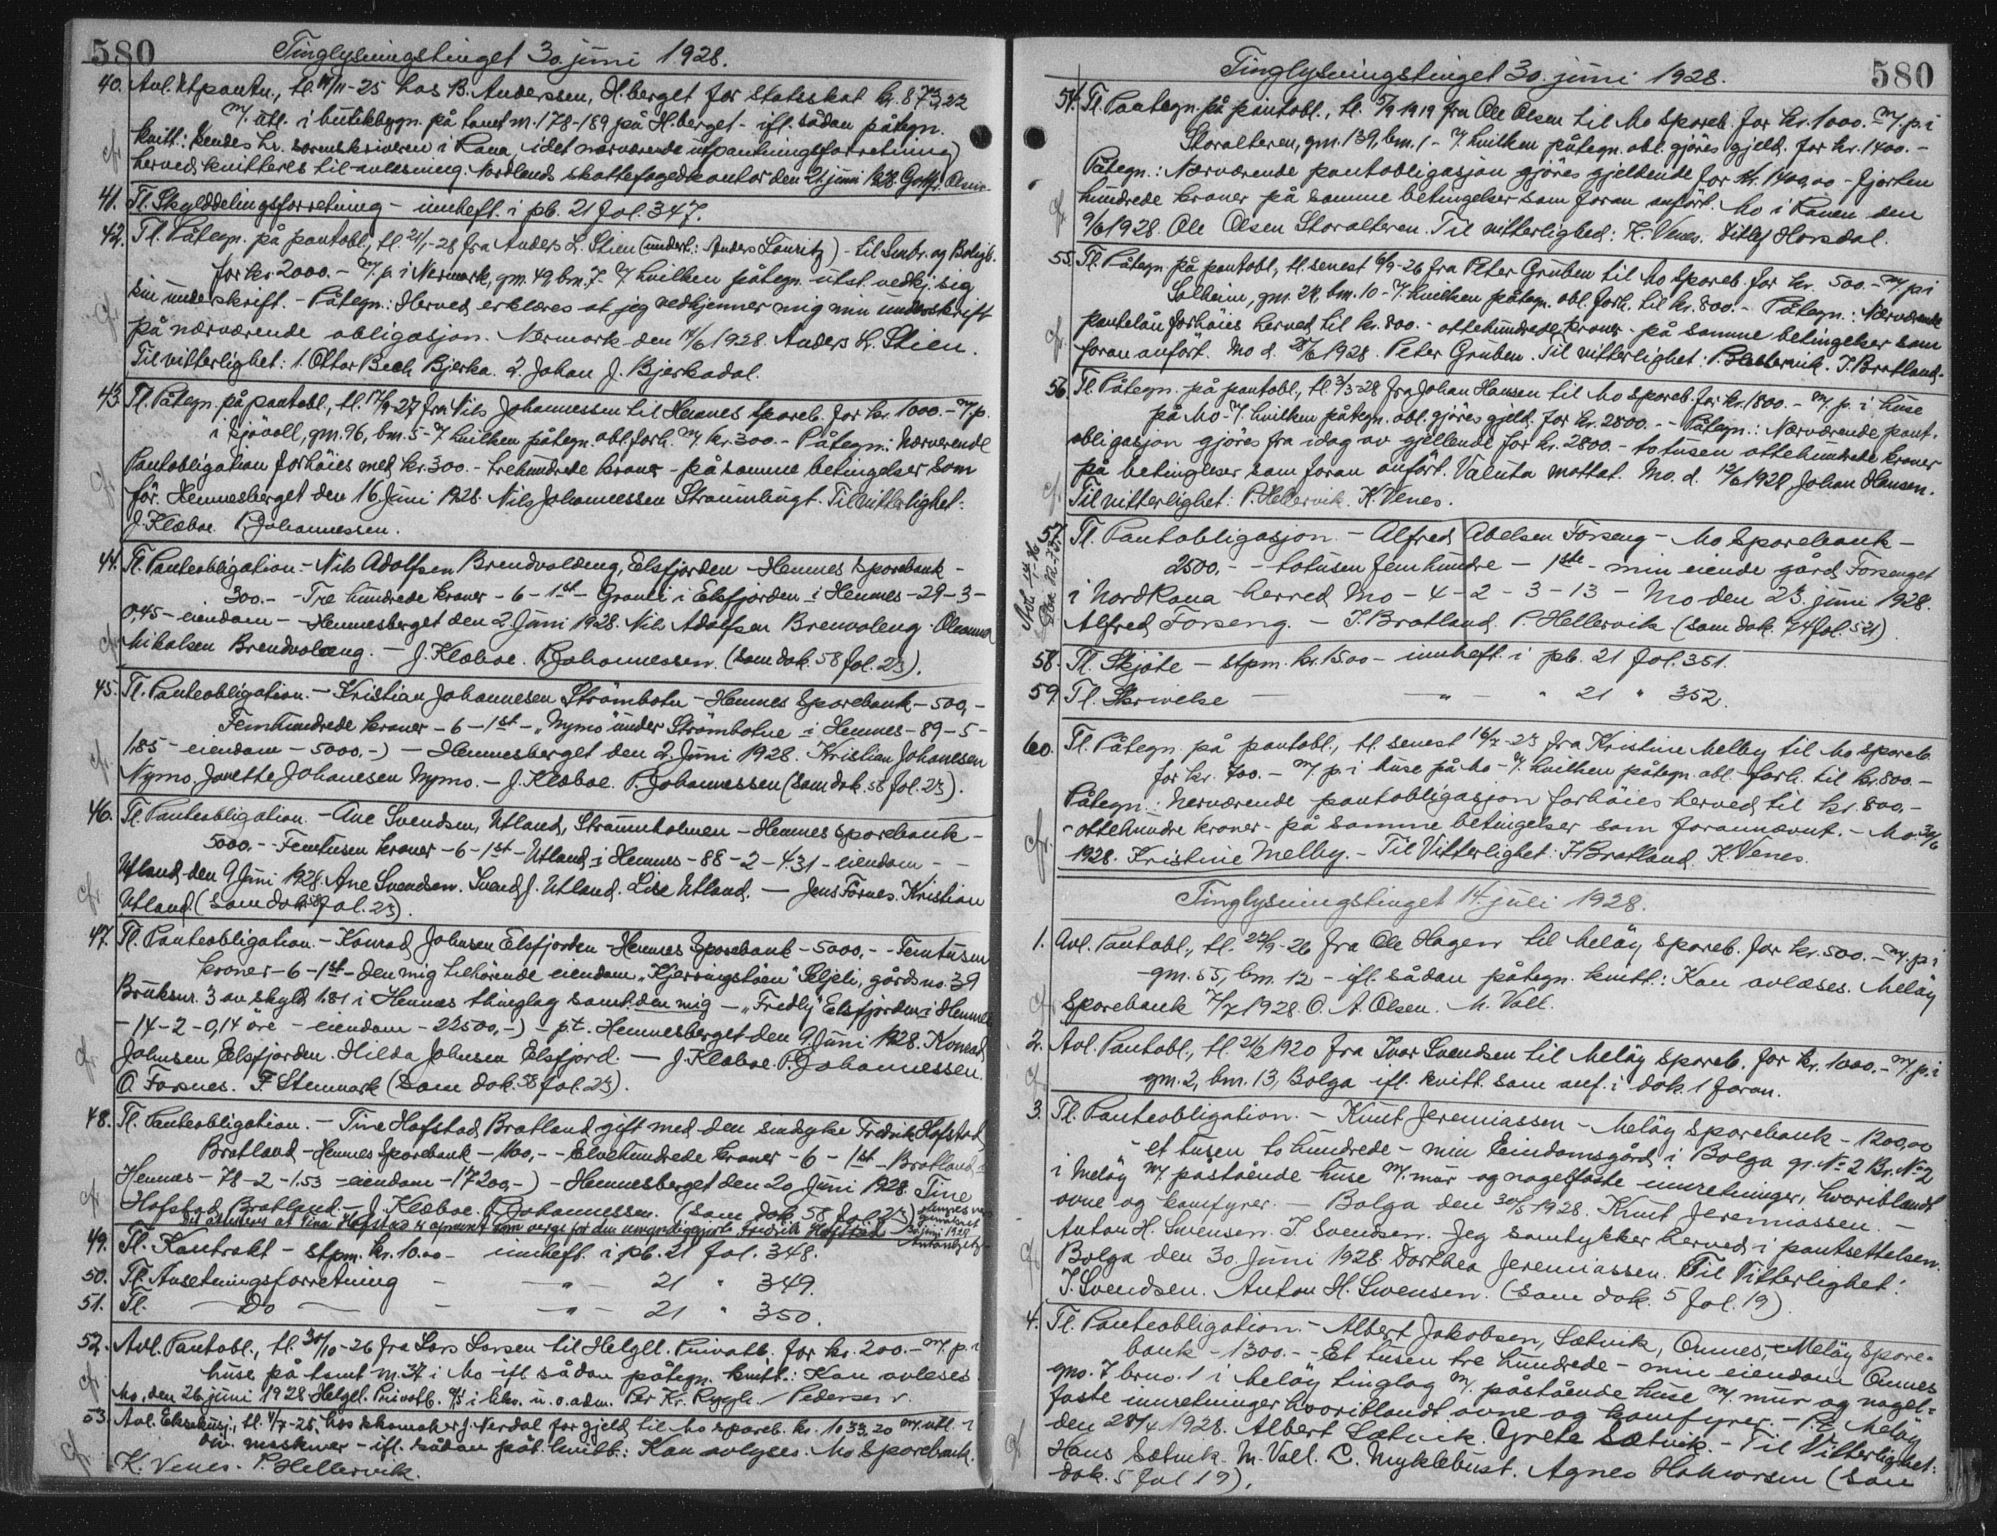 580
Tinglysningstinget 30. juni 1928.
40. Avl. Utpantn., tl. 11/11-25 hos B. Anderssen, H.berget for statsskat kr. 873,22
m/ utl. i butikbygn. på tomt m. 178-189 på H.berget - ifl. sådan påtegn.
kvitt: Sendes hr. sorenskriveren i Rana, idet nærværende utpantningsforretning
herved kvitteres til avlesning. Nordlands skattefogedkontor den 21 juni 1928.
41. Tl. Skylddelingsforretning - innheft. i pb. 21 fol. 347.
42. Tl. Påtegn. på pantobl., tl. 21/1-28 fra Anders L. Stien (undert.: Anders Lauritz) - til Smbr. og Boligb.
for kr. 2000.- m/ p. i Nermark, gm. 49, bm. 7- v/ hvilken påtegn. utst. vedkj. sig
sin underskrift. - Påtegn.: Herved erklæres at jeg vedkjenner mig min underskrift
på nærværende obligasjon. Nermark den 14/6 1928. Anders L. Stien.
Til vitterlighet: 1. Ottar Bech Bjerka. 2. Johan J. Bjerkadal.
43. Tl. Påtegn. på pantobl., tl. 17/9-27 fra Nils Johannessen til Hemnes Spareb. for kr. 1000.- m/ p.
i Sjøvoll, gm. 96, bm. 5- v/ hvilken påtegn. obl. forh. m/ kr. 300.- Påtegn.: Nærværende
Pantobligation forhöies med kr. 300.- trehundrede kroner - på samme betingelser som
för. Hemnesberget den 16 Juni 1928. Nils Johannessen Straumbugt. Til vitterlighet:
J. Klæboe. P. Johannessen.
44. Tl. Panteobligation. - Nils Adolfsen Brendvoldeng, Elsfjorden - Hemnes Sparebank -
300.- - Tre hundrede kroner - 6 - 1st - Granli i Elsfjorden i Hemnes - 29 - 3 -
0,45 - eiendom - Hemnesberget den 2. Juni 1928. Nils Adolfsen Brenvoleng. Oleanna
Nikolsen Brendvoleng. - J. Klæboe. P. Johannessen. (som dok. 58 fol. 23).
45. Tl. Panteobligation. - Kristian Johannesen Strömbotn - Hemnes Sparebank - 500,-
Femhundrede kroner - 6 - 1st - "Nymo" under Strömbotne i Hemnes - 89 - 5 -
1.85 - eiendom - 5000,-) - Hemnesberget den 2. Juni 1928. Kristian Johansen
Nymo. Janette Johanesen Nymo. - J. Klæboe. P. Johannessen (som dok. 58 fol. 23).
46. Tl. Panteobligation. - Ane Svendsen, Utland, Straumholmen - Hemnes Sparebank -
5000.- - Femtusen kroner - 6 - 1st - Utland i Hemnes - 88 - 2 - 4.31 - eiendom - -
Utland den 9 Juni 1928. Ane Svendsen. Svend J. Utland. Lise Utland. - Jens Fornes. Kristian
Utland (som dok. 58 fol. 23).
47. Tl. Panteobligation. - Konrad Johnsen Elsfjorden - Hemnes Sparebank - 5000,- - Femtusen
kroner - 6 - 1st - den mig tilhörende eiendom "Kjerringstöen" Seljeli, gårds no. 39
Bruksnr. 3 av skyld 1.81 i Hemnes thinglag samt den mig - "Fredly" Elsfjorden i Hemnes
- 14 - 2 - 0,14 öre - eiendom - 22500,-) - p.t. Hemnesberget den 9 Juni 1928. Konrad
Johnsen Elsfjorden. Hilda Johnsen Elsfjord. - J. Klæboe. P. Johannessen.
O. Forsnes. F. Stenmark (som dok. 58 fol. 23).
48. Tl. Panteobligation. - Tine Hofstad Bratland gift med den sindsyke Fredrik Hofstad,
Bratland - Hemnes Sparebank - 1100,- - Elvehundrede kroner - 6 - 1st - Bratland i
Hemnes - 78 - 2 - 1.53 - eiendom - 17200,-) - Hemnesberget den 20 Juni 1928. Tine
Hofstad Bratland. - J. Klæboe. P. Johannessen. (som dok. 58 fol. 23)
at Tina Hofstad er opnevnt som verge for den umyndiggjorte Fredrik Hofstad
49. Tl. Kontrakt - stpm. kr. 10.00 - innheft. i pb. 21 fol. 348.
50. Tl. Ansetningsforretning - - " - 21 " 349.
51. Tl. - Do - - - " - 21 " 350.
52. Avl. Pantobl., tl. 30/10-26 fra Lars Larsen til Helgel. Privatb. for kr. 200.- m/ p. i
huse på tomt m. 37 i Mo ifl. sådan påtegn. kvitt.: Kan avleses
Mo, den 26 juni 1928 Helgel. Privatb. A/S i likv. u. o. adm. Per Kr. Rygh / Pedersen
53. Avl. Eksekusj., tl. 4/7-25, hos skomaker J. Nerdal for gjeld til Mo Spareb. kr. 1033,20 m/ utl. i
div. maskiner - ifl. sådan påt. kvitt.: Kan avlyses. Mo Sparebank.
K. Venes. P. Hellervik.
580
Tinglysningstinget 30. juni 1928.
54. Tl. Påtegn. på pantobl., tl. 5/9-1919 fra Ole Olsen til Mo Spareb. for kr. 1000.- m/ p. i
Storalteren, gm. 139, bm. 1 - v/ hvilken påtegn. obl. gjöres gjeld. for kr. 1400.-
Påtegn.: Nærværende pantobligasjon gjöres gjeldende for kr. 1400,00 - fjorten
hundrede kroner på samme betingelser som foran anfört. Mo i Ranen den
9/6 1928. Ole Olsen Storalteren. Til vitterlighed: K. Venes. Ditlef Horsdal.
55. Tl. Påtegn. på pantobl., tl. senest 6/9-26 fra Peter Gruben til Mo Spareb. for kr. 500.- m/ p. i
Solheim, gm. 24, bm. 10 - v/ hvilken påtegn. obl. forh. til kr. 800.- Påtegn.: Nærværende
pantelån forhöies herved til kr. 800.- ottehundrede kroner - på samme betingelser som
foran anfört. Mo d. 25/6 1928. Peter Gruben. Til vitterlighet: P. Hellervik. J. Bratland.
56. Tl. Påtegn. på pantobl., tl. 3/3-28 fra Johan Hansen til Mo Spareb. for kr. 1800.- m/ p. i huse
på Mo - v/ hvilken påtegn. obl. gjöres gjeld. for kr. 2800.- - Påtegn.: Nærværende pant-
obligasjon gjöres fra idag av gjellende for kr. 2800.- totusen ottehundrede kroner
på betingelser som foran anfört. Valuta mottat. Mo. d. 12/6 1928 Johan Hansen.
Til vitterlighet: P. Hellervik. K. Venes.
57. Tl. Pantobligasjon - Alfred Abelsen Forseng - Mo Sparebank -
2500.- - totusen femhundre - 1ste - min eiende gård Forsenget
i Nord Rana herred Mo - 4 - 2 - 3 - 13 - Mo den 23. juni 1928.
Alfred Forseng. - J. Bratland. P. Hellervik (som dok. 14 fol. 521).
58. Tl. Skjöte - stpm. kr. 15.00 - innheft. i pb. 21 fol. 351.
59. Tl. Skrivelse - - " - " 21 " 352.
60. Tl. Påtegn. på pantobl., tl. senest 16/7-23 fra Kristine Melby til Mo Spareb.
for kr. 700.- m/ p. i huse på Mo - v/ hvilken påtegn. obl. forh. til kr. 800.-
Påtegn.: Nærværende pantobligasjon forhöies herved til kr. 800,-
- ottehundre kroner - på samme betingelser som forannævnt. - Mo. 30/6
1928. Kristine Melby. - Til Vitterlighet: J. Bratland. K. Venes.
Tinglysningstinget 14. juli 1928.
1. Avl. Pantobl., tl. 22/9-26 fra Ole Hagen til Meløy Spareb. for kr. 500.- m/ p. i
gm. 55, bm. 12 - ifl. sådan påtegn. kvitt.: Kan avlæses. Meløy
Sparebank 7/7 1928. O. A. Olsen. M. Vall.
2. Avl. Pantobl., tl. 21/2 1920 fra Ivar Svendsen til Meløy Spareb. for kr. 1000.- m/ p. i
gm. 2, bm. 13, Bolga ifl. kvitt. som anf. i dok. 1 foran.
3. Tl. Panteobligation. - Knut Jeremiassen - Meløy Sparebank - 1200,00
- et tusen to hundrede - min Eiendomsgård i Bolga gr. No 2 Br. No 2
i Meløy m/ påstående huse m/ mur og nagelfaste innretninger, hvoriblandt
ovne og komfyrer. - Bolga den 30/5 1928. Knut Jeremiassen. -
Anton H. Swensen. J. Svendsen. Jeg samtykker herved i pantsettelsen.
Bolga den 30. Juni 1928. Dorthea Jeremiassen. Til Vitterlighet:
J. Svendsen. Anton H. Swensen. (som dok. 5 fol. 19).
4. Tl. Panteobligation. - Albert Jakobsen, Sætvik, Ørnes, - Meløy Spare-
bank - 1300.- - Et tusen tre hundrede - min eiendom Ørnes
gno. 7 brno. 1 i Meløy tinglag m/ påstående huse m/ mur og nagel-
faste innretninger hvoriblandt ovne og komfyrer. - Pt. Meløy
den 28/4 1928. Albert Sætvik Grete Sætvik. - Til Vitterlighet:
Hans Sætvik. M. Vall. L. Myklebust. Agnes Halvorsen (som
dok. 5 fol 19).